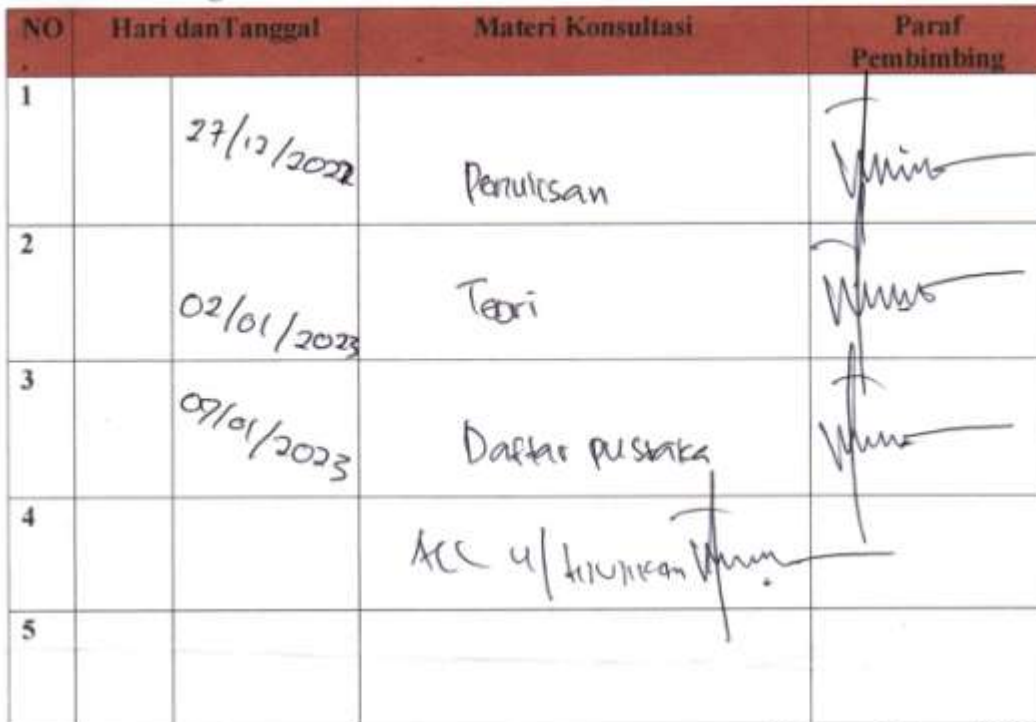 NO Hari danTanggal Materi Konsultasi Paraf
. Pembimbing
1
27/12/2022 Penulisan
2
02/01/2023 Teori
3
09/01/2023 Daftar pustaka
4
ACC u/ diujikan
5